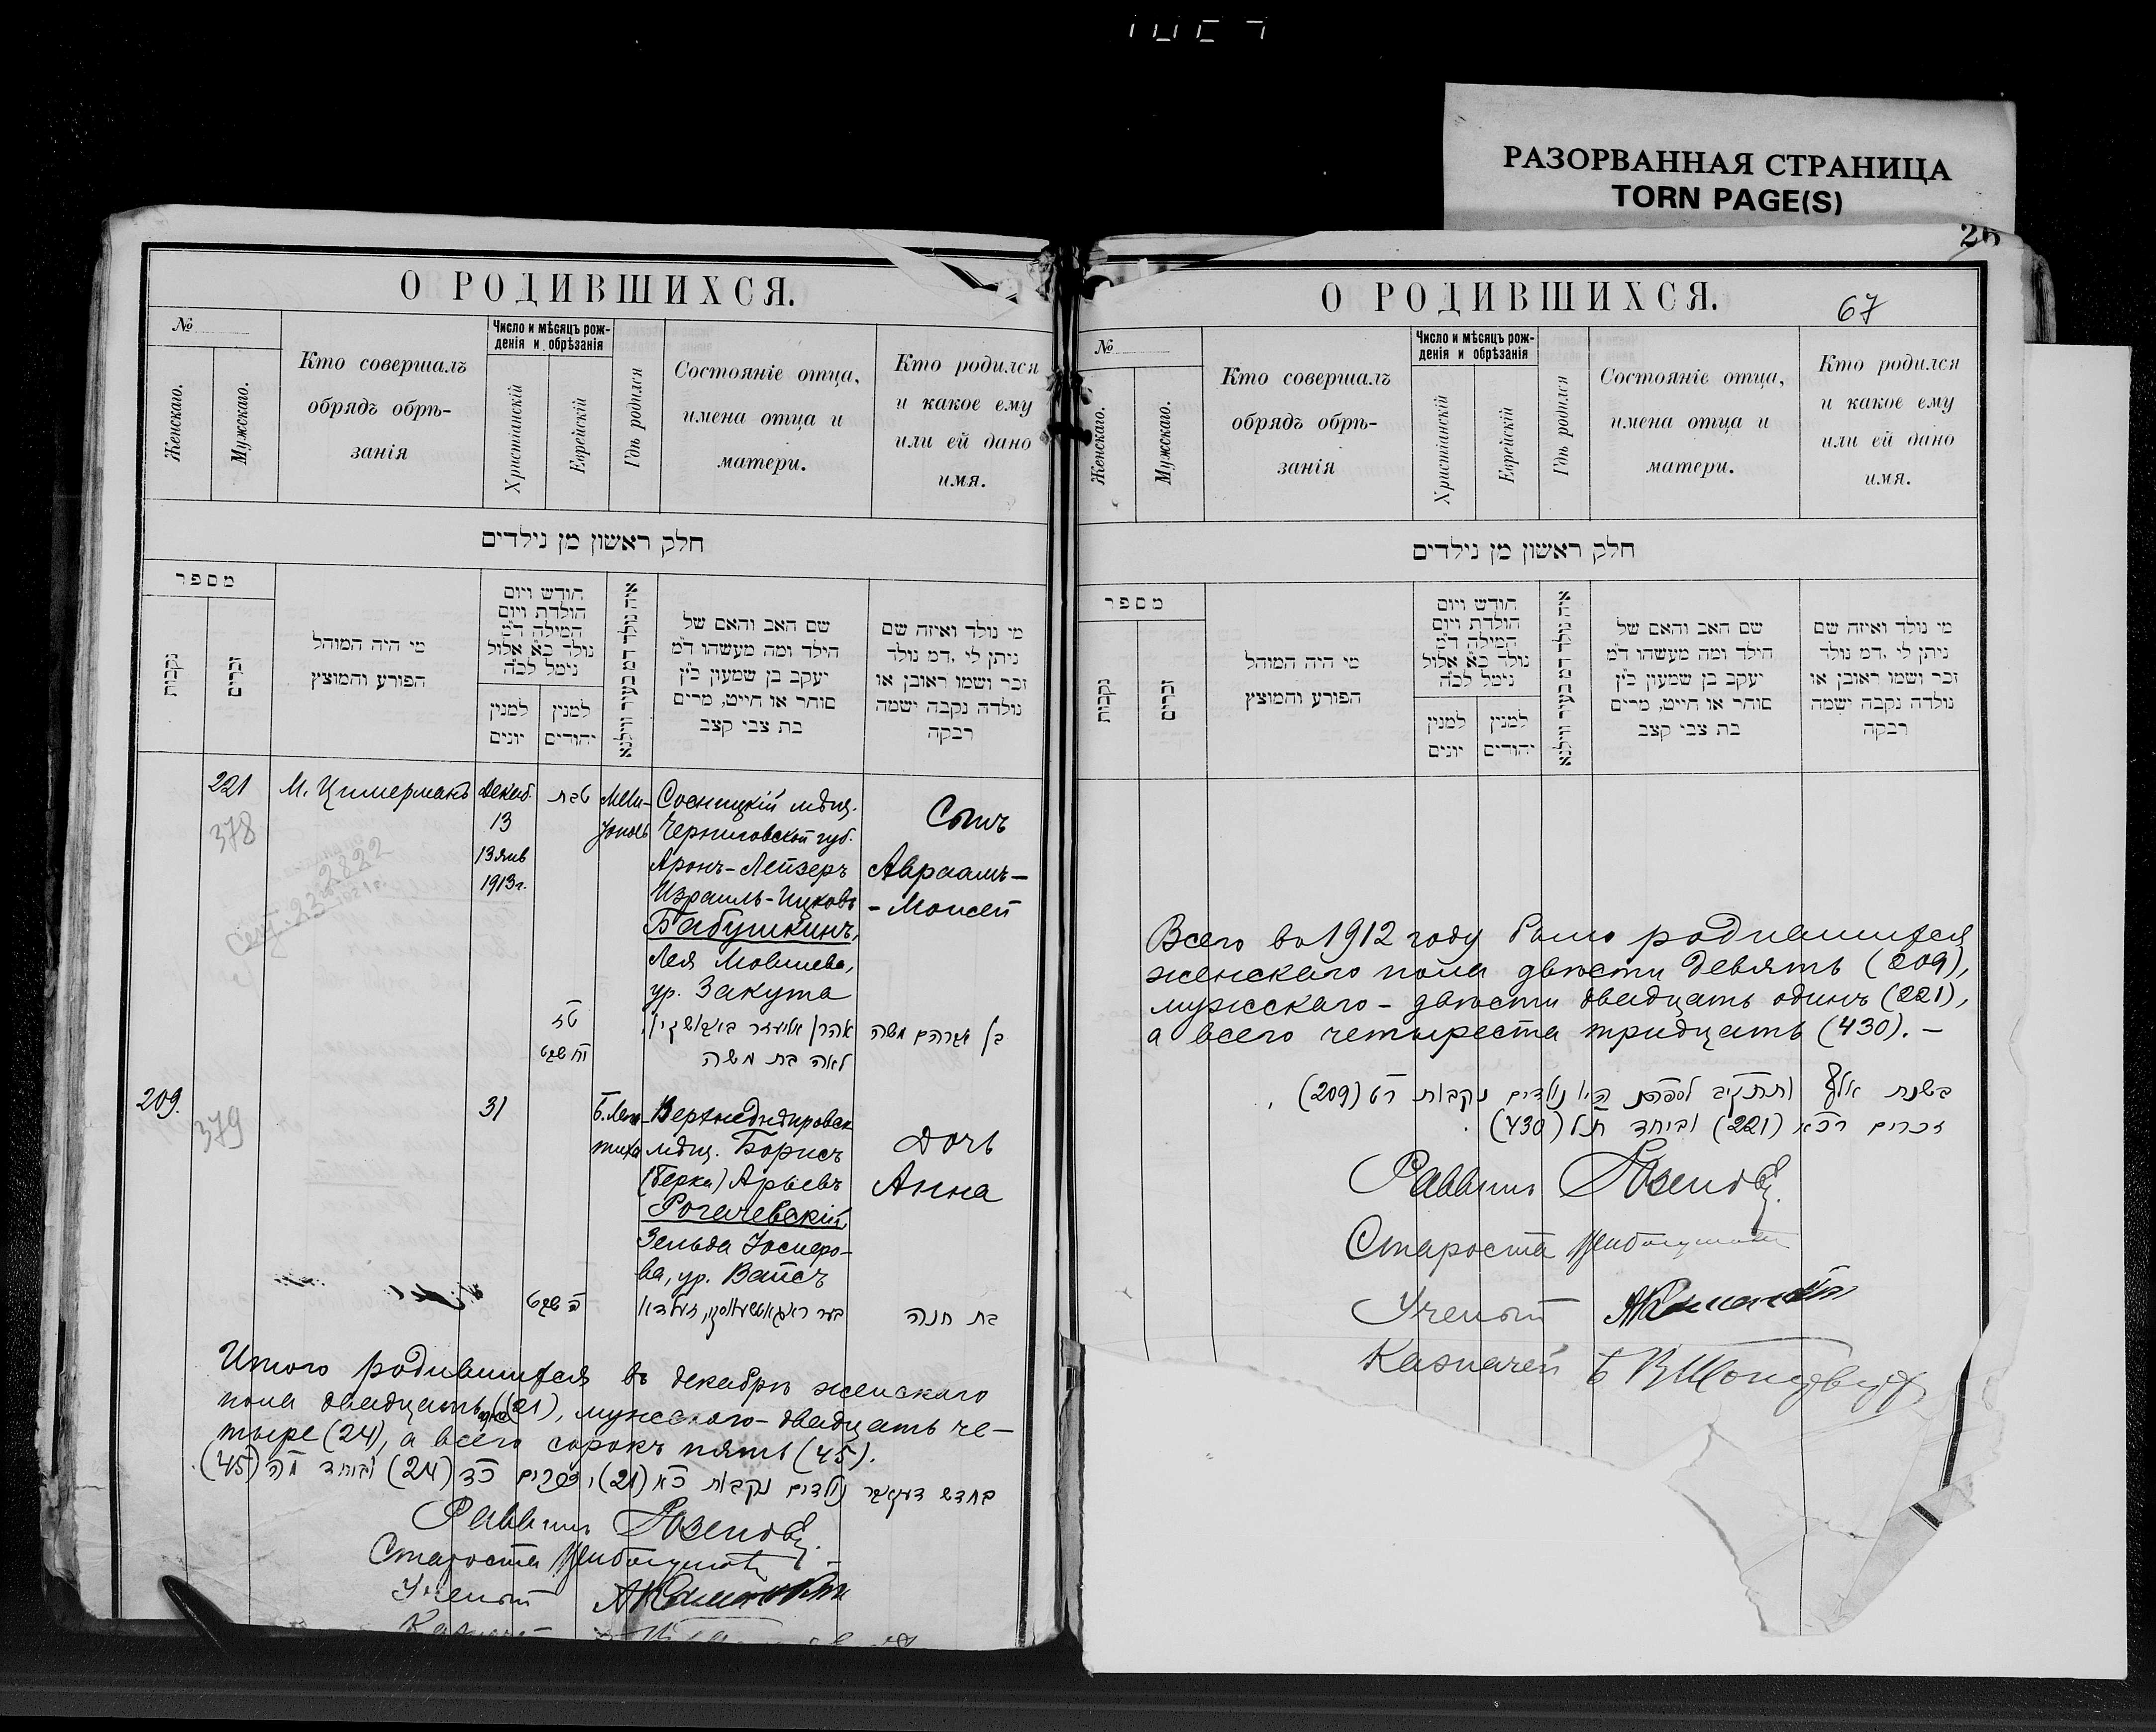 РАЗОРВАННАЯ СТРАНИЦА
TORN PAGE(S)
О РОДИВШИХСЯ.
№
Женскаго.
Мужскаго.
Кто совершалъ
обрядъ обрѣ-
занія
Число и мѣсяцъ рож-
денія и обрѣзанія
Христіанскій
Еврейскій
Гдѣ родился
Состояніе отца,
имена отца и
матери.
Кто родился
и какое ему
или ей дано
имя.
חלק ראשון מן נילדים
מספר
נקבות
זכרים
מי היה המוהל
הפורע והמוצץ
חודש ויום
הולדת ויום
המילה ד״מ
נולד כ״א אלול
נימל לכ״ה
למנין
יונים
למנין
יהודים
שם האב והאם של
הילד ומה מעשהו ד״מ
יעקב בן שמעון כ״ץ
סוחר או חייט, מרים
בת צבי קצב
מי נולד ואיזה שם
ניתן לי ,דמ נולד
זכר ושמו ראובן או
נולדה נקבה ישמה
רבקה
221
378
М. Цимерманъ
Декаб.
13
13 янв
1913г.
טבת
Мели-
тополь
Сосницкій мѣщ.
Черниговской губ.
Аронъ-Лейзеръ
Израиль-Ицковъ
Бабушкинъ,
Лея Мовшева,
ур. Закута
Сынъ
Авраамъ-
- Моисей
2822
Сент. 23 1921 г.
טז
יח שבט
אהרן אליעזר באבושקין,
לאה בת משה
בן אברהם משה
209.
379
31
Б. Леп-
тиха
Верхнеднѣпровск
мѣщ. Борисъ
(Берка) Арьевъ
Рогачевскій,
Зельда Іосифо-
ва, ур. Вайсъ
Дочь
Анна
ה שבט
בת חנה
Итого родившихся въ декабрѣ женскаго
пола двадцать одна (21), мужского - двадцать че-
тыре (24), а всего сорокъ пять (45).
בחדש דעקאבר נולדים נקבות כא (21), זכרים כד (24) וביחד מה (45).
Раввинъ
Староста
Ученый
Казначей
О РОДИВШИХСЯ.
26
67
№
Женскаго.
Мужскаго.
Кто совершалъ
обрядъ обрѣ-
занія
Число и мѣсяцъ рож-
денія и обрѣзанія
Христіанскій
Еврейскій
Гдѣ родился
Состояніе отца,
имена отца и
матери.
Кто родился
и какое ему
или ей дано
имя.
חלק ראשון מן נילדים
מספר
נקבות
זכרים
מי היה המוהל
הפורע והמוצץ
חודש ויום
הולדת ויום
המילה ד״מ
נולד כ״א אלול
נימל לכ״ה
למנין
יונים
למנין
יהודים
שם האב והאם של
הילד ומה מעשהו ד״מ
יעקב בן שמעון כ״ץ
סוחר או חייט, מרים
בת צבי קצב
מי נולד ואיזה שם
ניתן לי ,דמ נולד
זכר ושמו ראובן או
נולדה נקבה ישמה
רבקה
Всего во 1912 году было родившихся
женскаго пола двѣсти девять (209),
мужскаго - двѣсти двадцать одинъ (221),
а всего четыреста тридцать (430). -
בשנת אלף ותתקיב למספרם היו נולדים נקבות רט (209)
זכרים רכא (221) וביחד תל (430)
Раввинъ
Староста
Ученый
Казначей